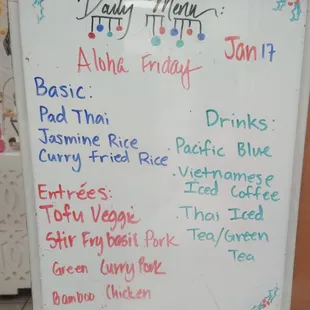 Daily Menu:
Jan 17
Aloha Friday
Basic:
Pad Thai
Jasmine Rice
Curry fried Rice
Entrées:
Tofu Veggie
Stir Fry basil Pork
Green Curry Pork
Bamboo Chicken
Drinks:
. Pacific Blue
. Vietnamese
Iced Coffee
. Thai Iced
Tea/Green
Tea